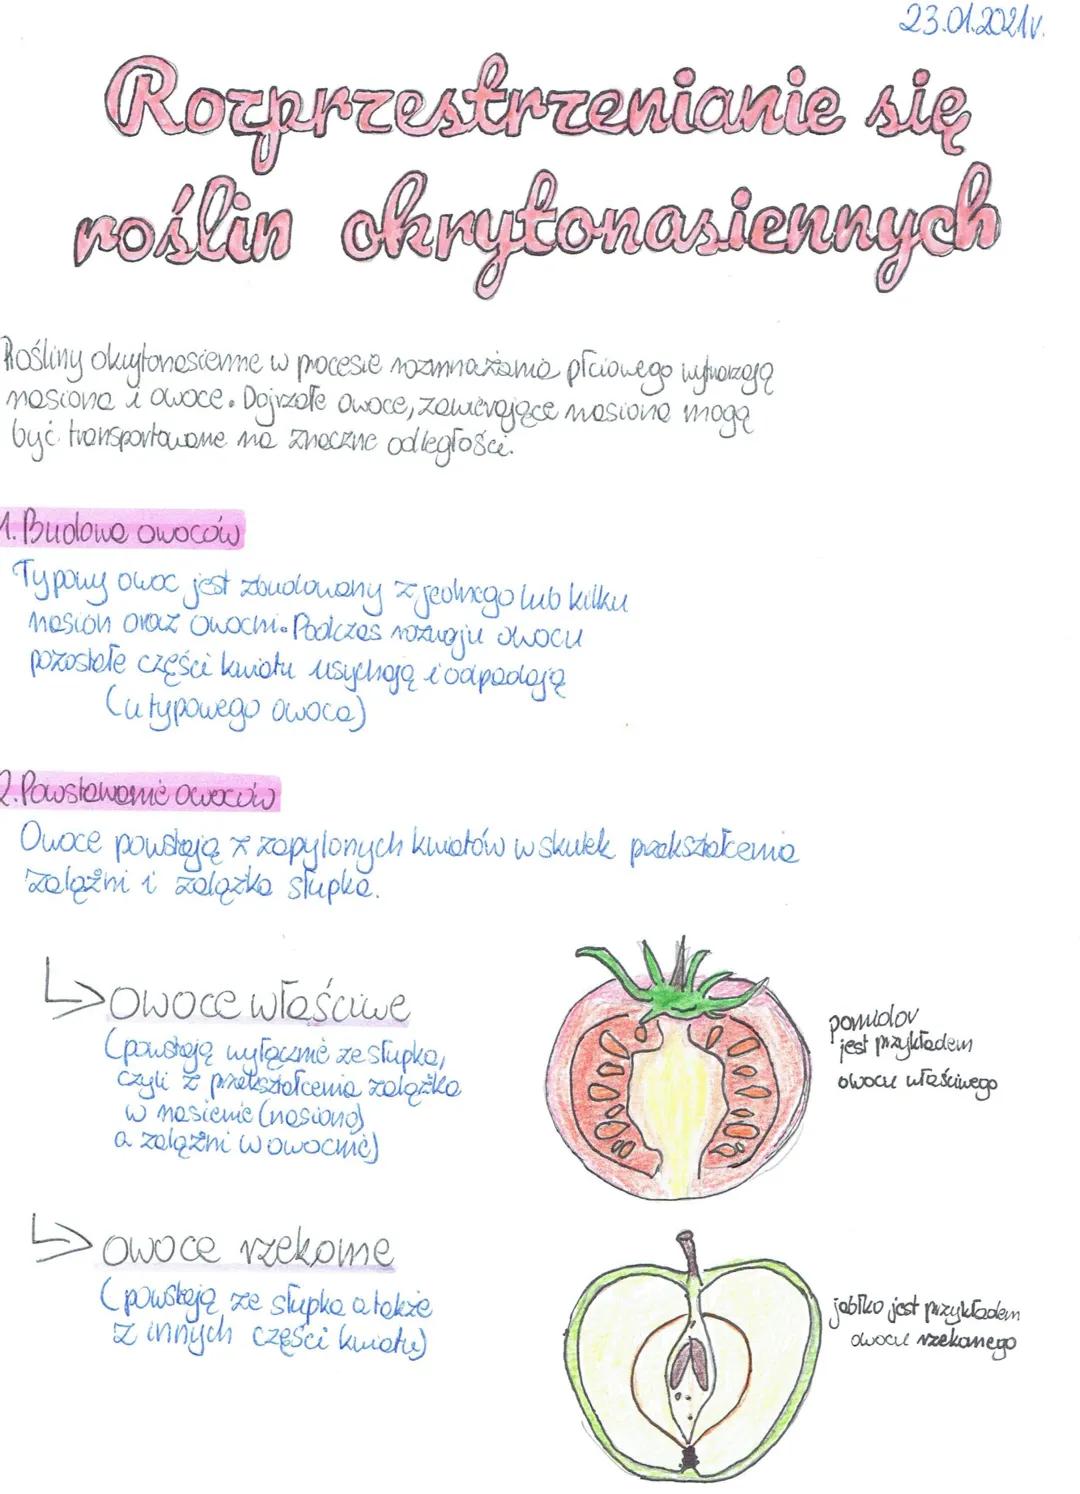 23.01.2021r.
Rozprzestrzenianie się
roślin okrytonasiennych
Rośliny okrytonasienne w procesie rozmnażania płciowego wytwarzają
nasiona i owoce. Dojrzałe owoce, zawierające nasiona mogą
być transportowane na znaczne odległości.
1. Budowa owoców
Typowy owoc jest zbudowany z jednego lub kilku
nasion oraz owocni. Podczas rozwoju owocu
pozostałe części kwiatu usychają i odpadają
(u typowego owoca)
2. Powstawanie owoców
Owoce powstają z zapylonych kwiatów w skutek przekształcenia
zalążni i zalążka słupka.
Owoce właściwe
(powstają wyłącznie ze słupka,
czyli z przekształcenia zalążka
w nasienie (nasiona)
a zalążni w owocnie)
pomidor
jest przykładem
owocu właściwego
owoce rzekome
(powstają ze słupka a także
z innych części kwiatu)
jabłko jest przykładem
owocu rzekomego